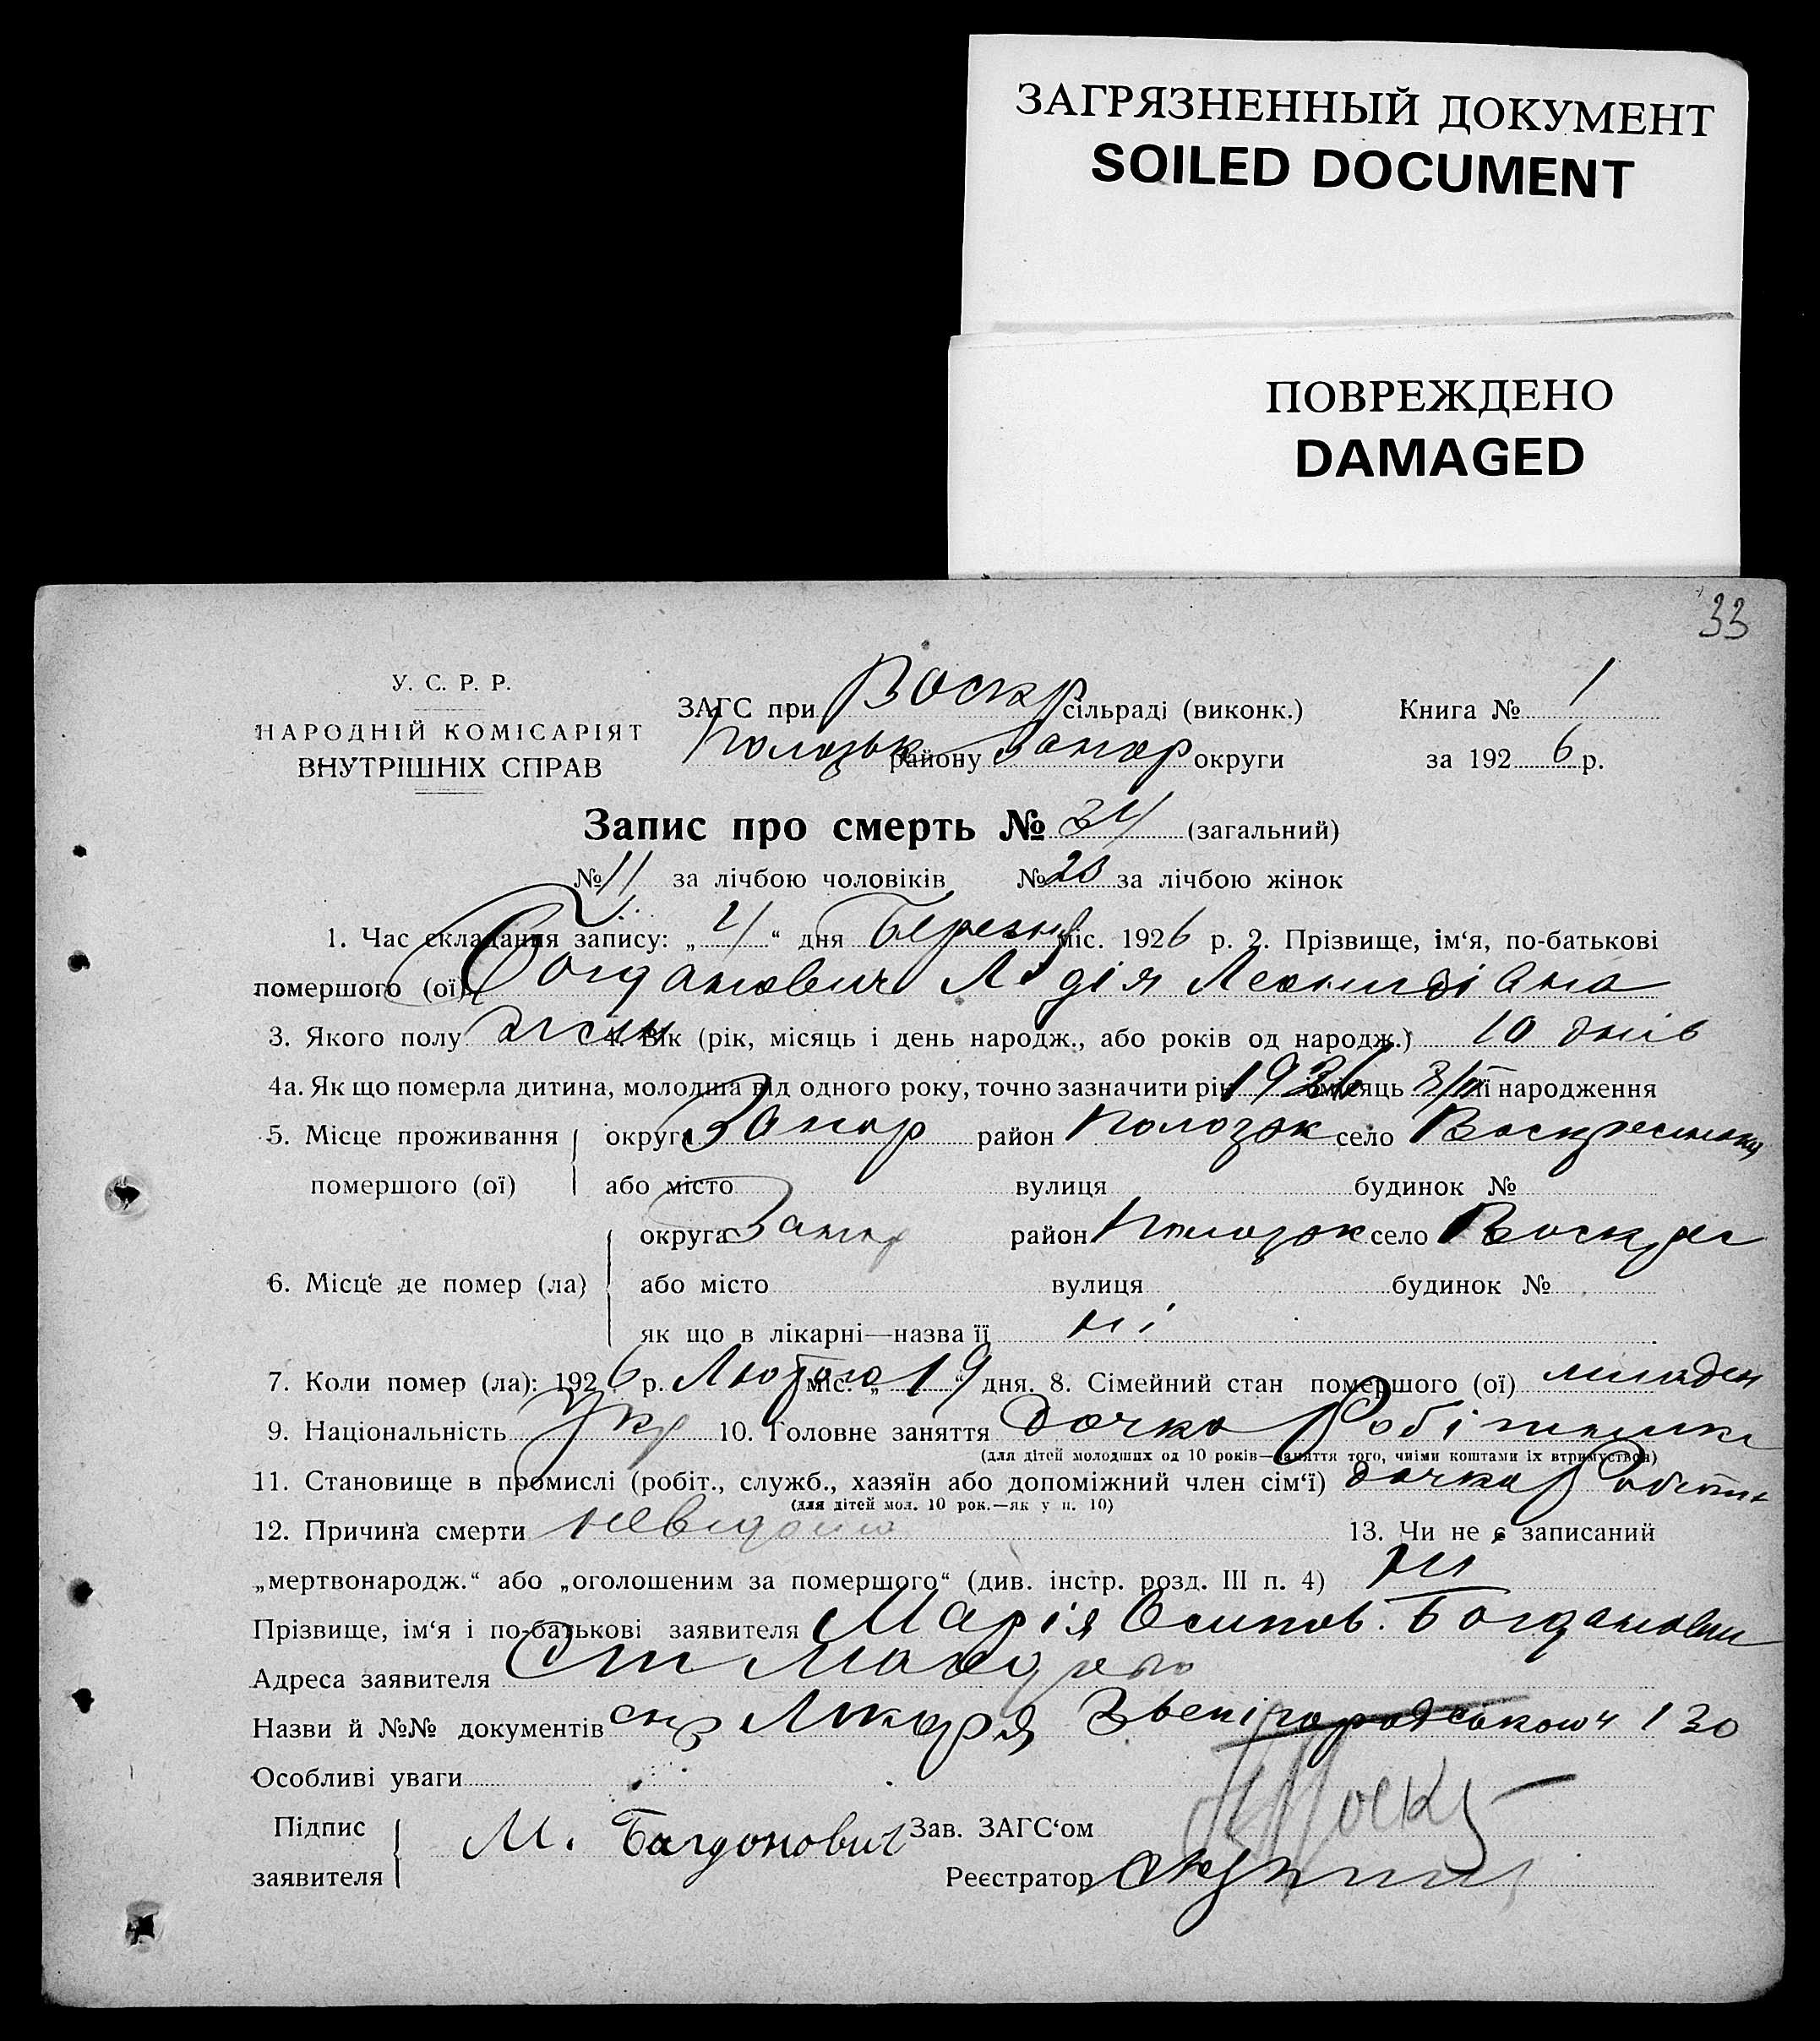 ЗАГРЯЗНЕННЫЙ ДОКУМЕНТ
SOILED DOCUMENT
ПОВРЕЖДЕНО
DAMAGED
33
У. С. Р. Р.
НАРОДНІЙ КОМІСАРІЯТ
ВНУТРІШНІХ СПРАВ
ЗАГС при Воскр сільраді (виконк.) Книга № 1
району Запор округи за 1926 р.
Запис про смерть № 34 (загальний)
№ 11 за лічбою чоловіків № 23 за лічбою жінок
1. Час складання запису: „ 4 “ дня Березня міс. 1926 р. 2. Прізвище, ім‘я, по-батькові
помершого (ої) Богданович Лідія Леонидівна
3. Якого полу жін 4. Вік (рік, місяць і день народж., або років од народж.) 10 днів
4а. Як що померла дитина, молодша від одного року, точно зазначити рік 1926 місяць її народження
5. Місце проживання округа Запор район Пологзк село
помершого (ої) або місто вулиця будинок №
округа Запор район Пологзк село Воскрес
6. Місце де помер (ла) або місто вулиця будинок №
як що в лікарні—назва її ні
7. Коли помер (ла): 1926 р. Лютого міс. „ 19 “ дня. 8. Сімейний стан помершого (ої) младен
9. Національність Укр 10. Головне заняття дочка Робітника
(для дітей молодших од 10 років—заняття того, чиїми коштами їх втримується)
11. Становище в промислі (робіт., служб., хазяїн або допоміжний член сім‘ї) дочка Робітн
(для дітей мол. 10 рок.—як у п. 10)
12. Причина смерти невідома 13. Чи не є записаний
„мертвонародж.“ або „оголошеним за помершого“ (див. інстр. розд. III п. 4) ні
Прізвище, ім‘я і по-батькові заявителя Марія Осипов. Богданович
Адреса заявителя Ст
Назви й №№ документів Лікаря 130
Особливі уваги
Підпис
заявителя М. Багдонович
Зав. ЗАГС‘ом
Реєстратор